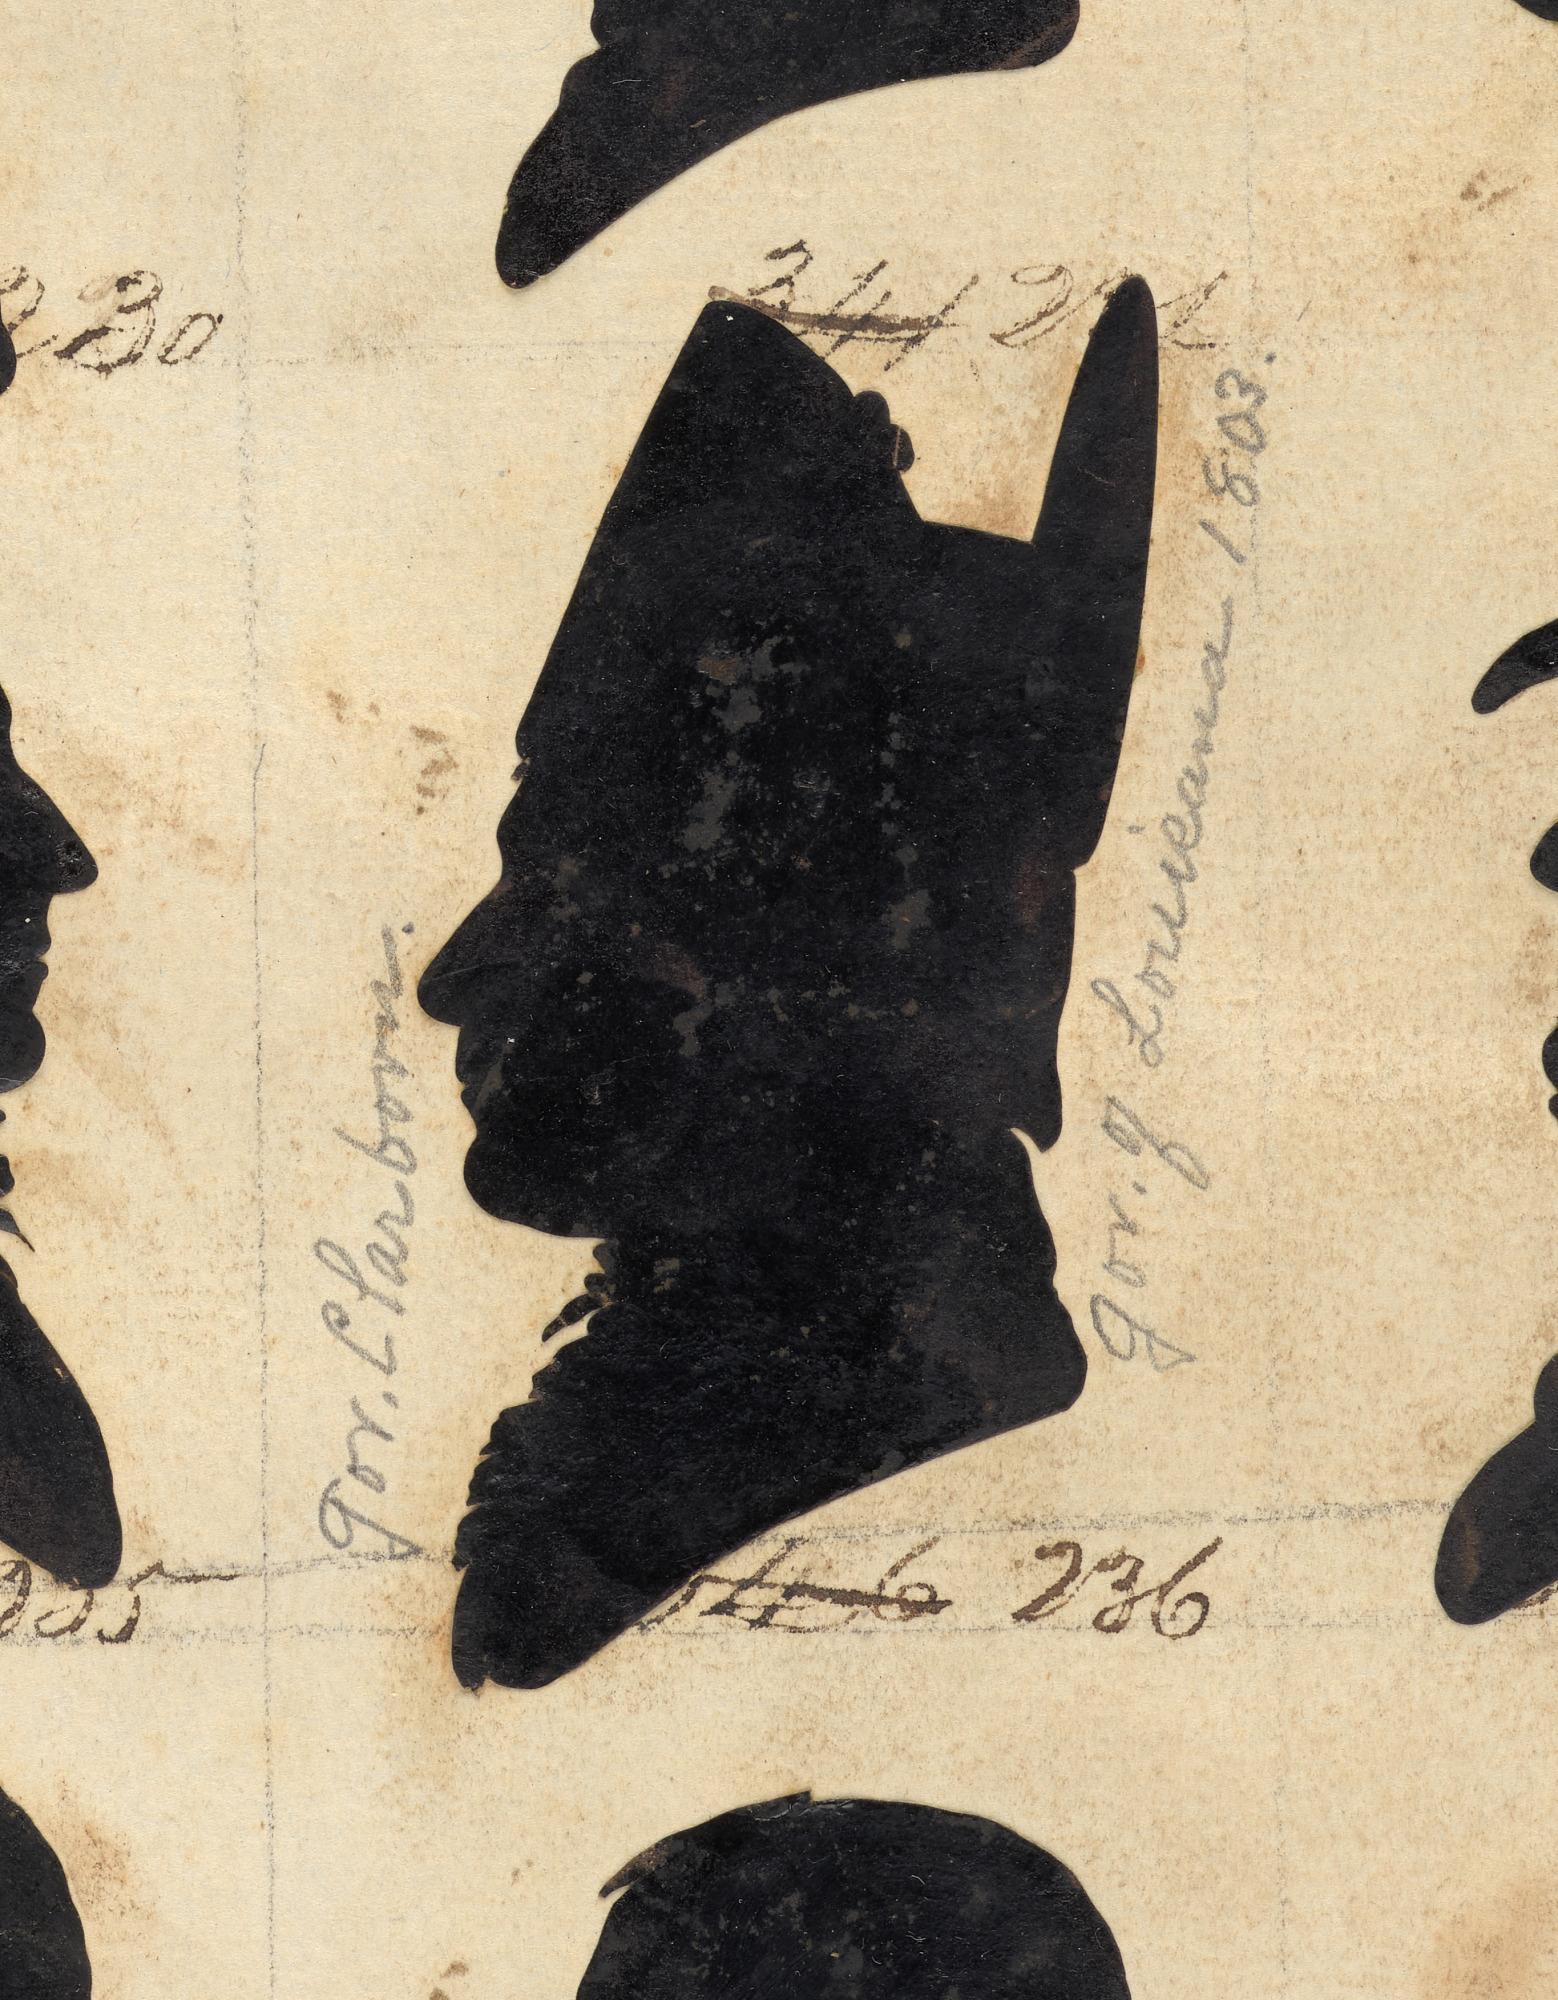 230
341
Gov. Clarborn.
Gov. of Louisiana 1803.
225
546 236